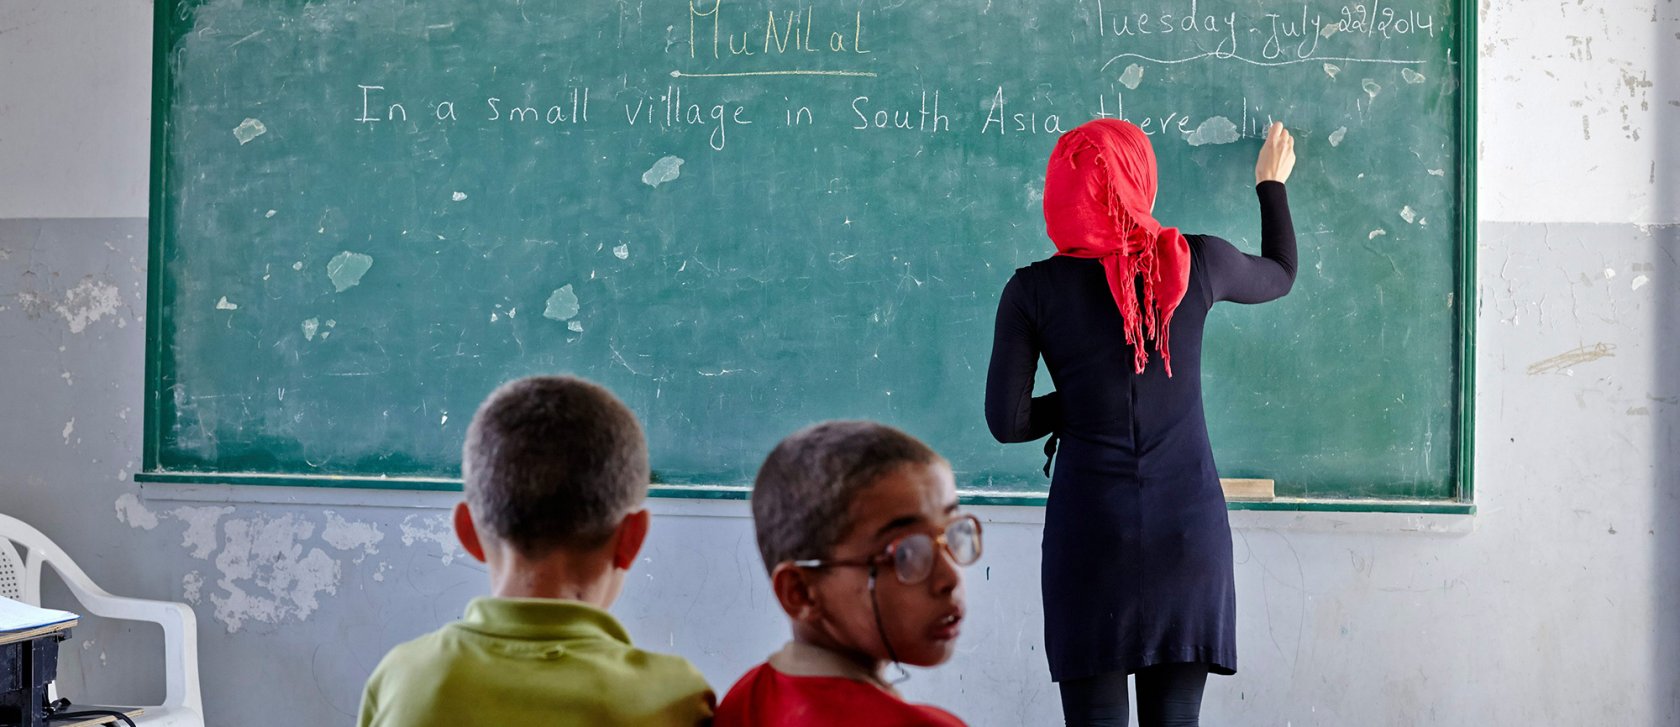 MuNiLaL
Tuesday - July 22/2014.
In a small village in South Asia there